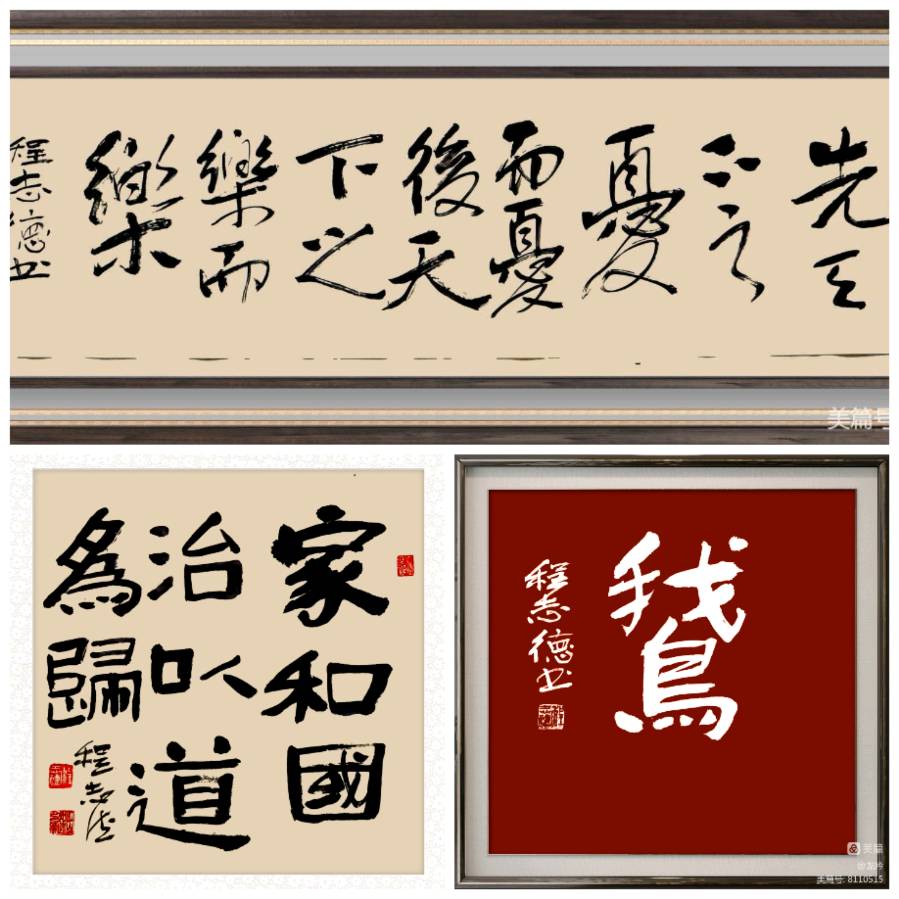 先天
下之
憂
而憂
後天
下之
樂而
樂
程志德书
美篇号
家和國
治以道
為歸
程志德
鵞
程志德书
美篇
美篇号: 8110515